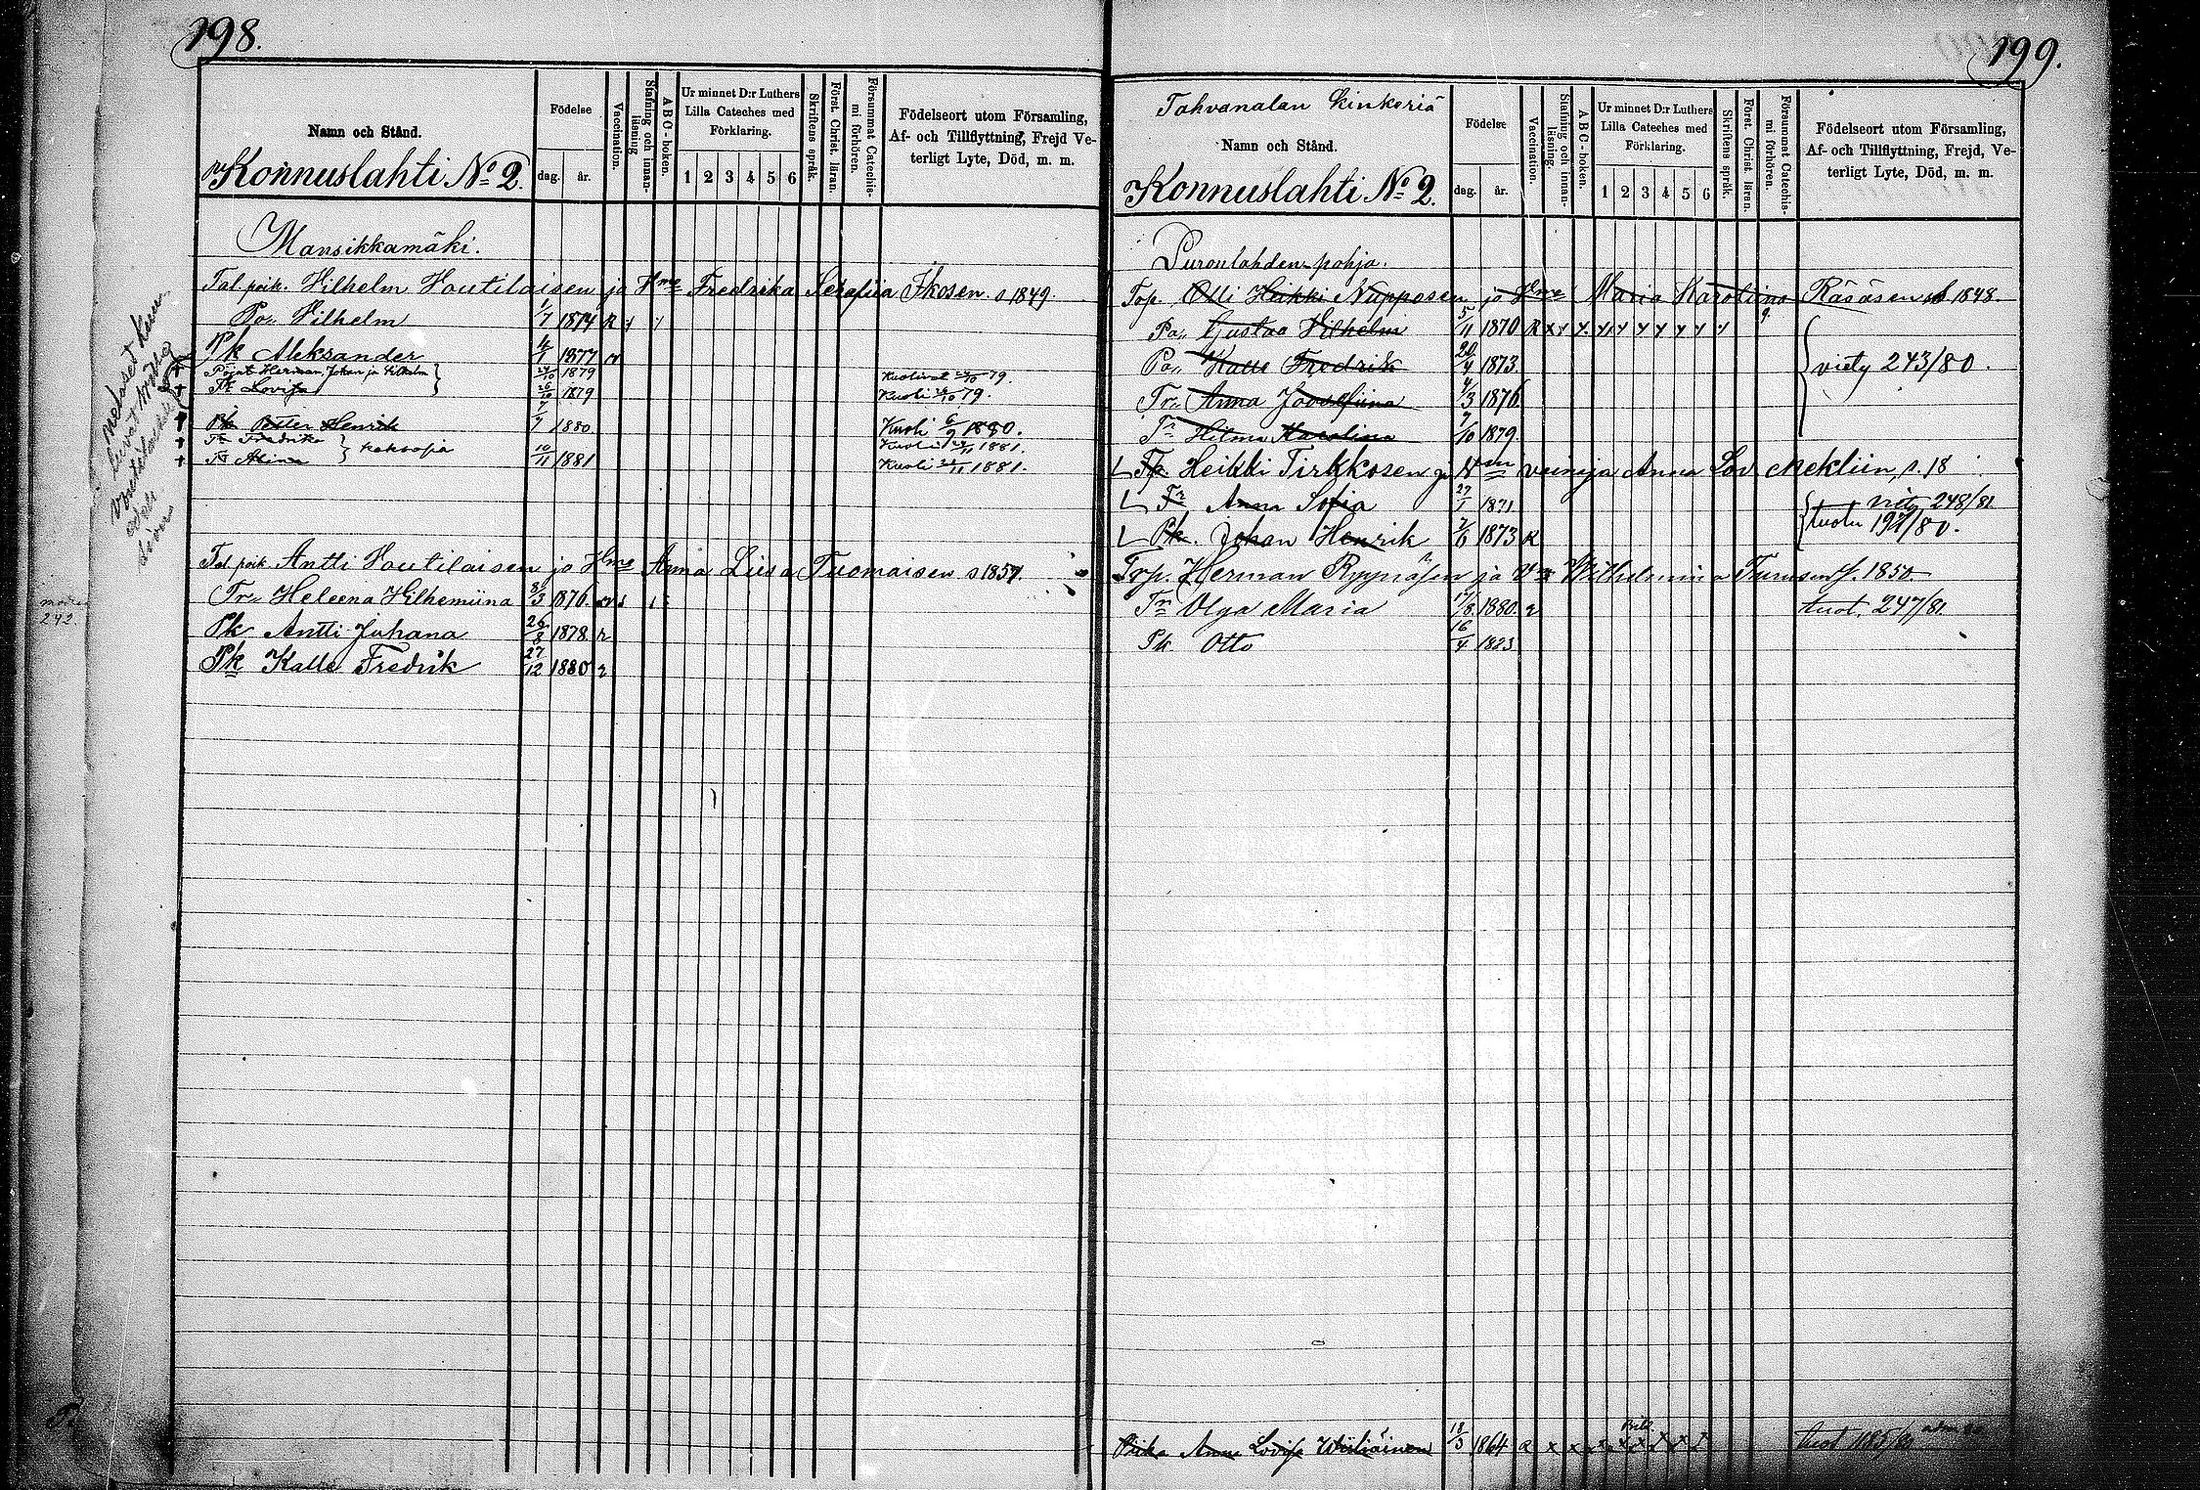 198.
Namn och Stånd.
Konnuslahti No 2.
Födelse
dag. år.
Vaccination.
Stafning och innan-läsning
ABC-boken.
Ur minnet D:r Luthers
Lilla Cateches med
Förklaring.
1 2 3 4 5 6
Skriftens språk.
Först. Christ. läran.
Försummat Catechis-mi förhören.
Födelseort utom Församling,
Af- och Tillflyttning, Frejd Ve-
terligt Lyte, Död, m. m.
Mansikkamäki.
Tal. poik. Wilhelm Houtilaisen ja Hme Fredrika Serafiia Ikosen s 1849.
Po. Vilhelm 1/7 1874 R
Pk Aleksander 4/1 1877
Pojat Herman, Johan ja Vilhelm 1879 Kuolivat 79.
Tr. Lovisa 1879 Kuoli 79.
Pk Petter Henrik 1880. Kuoli 6/9 1880.
Tr Fredrika } kaksosia Kuoli 1881.
Tr Alina 10/11 1881 Kuoli 1881.
Tal. poik. Antti Houtilaisen ja Hme Anna Liisa Tuomaisen s 1857.
Tr. Heleena Wilhemiina 3/3 1876.
Pk Antti Juhana 26/8 1878 r
Pk Kalle Fredrik 27/12 1880 r
242
199.
Tahvanalan kinkeriä
Namn och Stånd.
Konnuslahti No 2.
Födelse
dag. år.
Vaccination.
Stafning och innan-läsning.
ABC-boken.
Ur minnet D:r Luthers
Lilla Cateches med
Förklaring.
1 2 3 4 5 6
Skriftens språk.
Först. Christ. läran.
Försummat Catechis-mi förhören.
Födelseort utom Församling,
Af- och Tillflyttning, Frejd, Ve-
terligt Lyte, Död, m. m.
Puronlahden pohja.
Top. Olli Heikki Nupposen ja Hme Maria Karoliina Räsäsen 1848.
Po. Gustaa Vilhelmi 5/11 1870 R x
Po. Kalle Fredrik 20/4 1873. viety 243/80.
Tr. Anna Joosefiina 4/3 1876
Tr Hilma Karolina 7/10 1879.
Tp. Heikki Tirkkosen ja vaimoja Anna Lov. Mekliin, s. 18
Tr Anna Sofia 27/1 1871 viety 248/81
Pk. Johan Henrik 7/6 1873 R tuotu 197/80.
Top. Herman Ryynäsen ja Vo Wilhelmina Turusen f. 1850
Tr Olga Maria 1880. r tuot. 247/81.
Pk Otto 16/4 1883
Piika Anna Lovisa Wäliäinen 18/3 1864 R x x x x x x x tuot